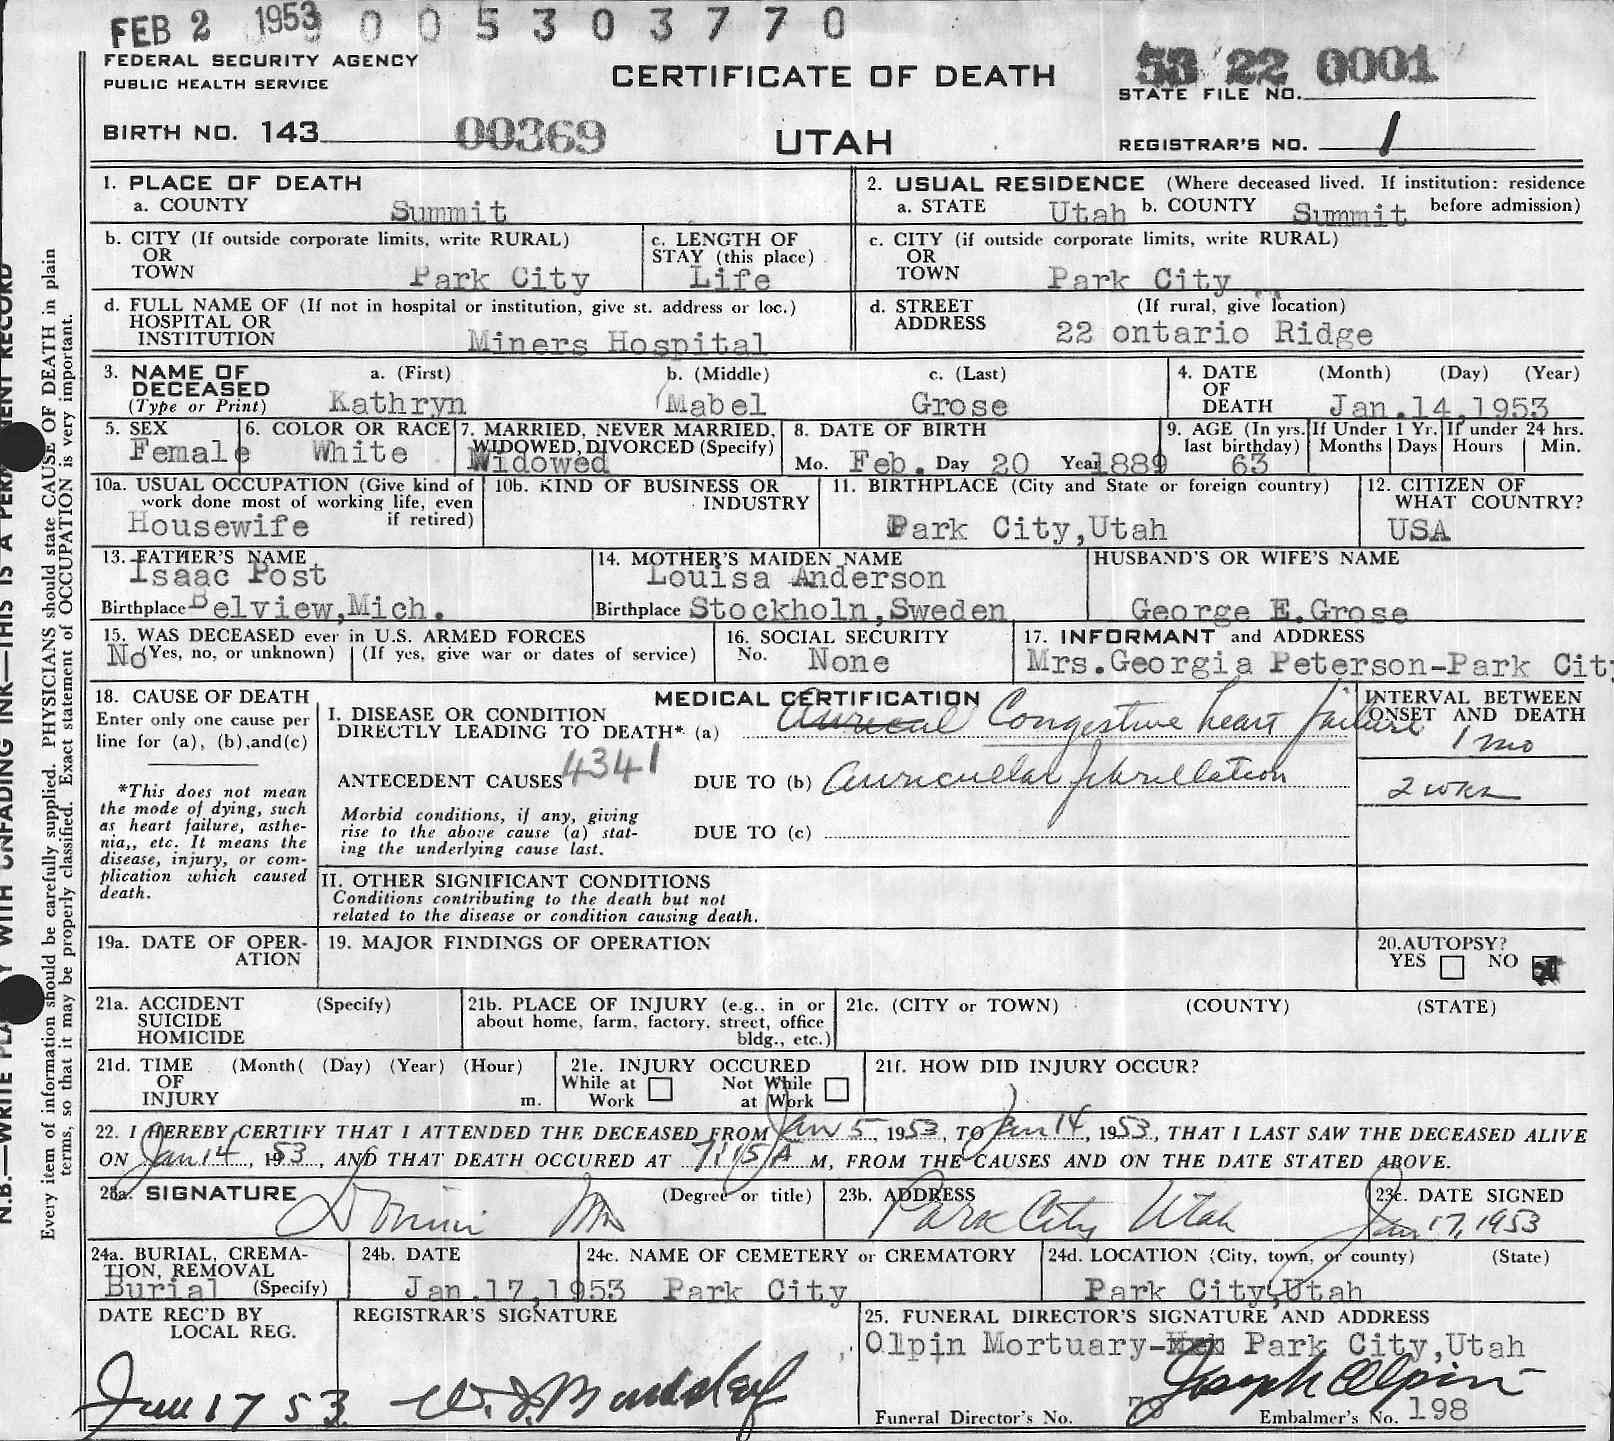 FEB 2 1953 0 0 5 3 0 3 7 7 0
FEDERAL SECURITY AGENCY
PUBLIC HEALTH SERVICE
CERTIFICATE OF DEATH
53 22 0001
STATE FILE NO.
BIRTH NO. 143 00369
UTAH
REGISTRAR'S NO. 1
1. PLACE OF DEATH
a. COUNTY Summit
2. USUAL RESIDENCE (Where deceased lived. If institution: residence before admission)
a. STATE Utah b. COUNTY Summit
b. CITY (If outside corporate limits, write RURAL)
OR
TOWN Park City
c. LENGTH OF
STAY (this place)
Life
c. CITY (if outside corporate limits, write RURAL)
OR
TOWN Park City
d. FULL NAME OF (If not in hospital or institution, give st. address or loc.)
HOSPITAL OR
INSTITUTION Miners Hospital
d. STREET (If rural, give location)
ADDRESS 22 ontario Ridge
3. NAME OF
DECEASED
(Type or Print)
a. (First) b. (Middle) c. (Last)
Kathryn Mabel Grose
4. DATE (Month) (Day) (Year)
OF
DEATH Jan.14,1953
5. SEX
Female
6. COLOR OR RACE
White
7. MARRIED, NEVER MARRIED,
WIDOWED, DIVORCED (Specify)
Widowed
8. DATE OF BIRTH
Mo. Feb. Day 20 Year 1889
9. AGE (In yrs. last birthday)
63
If Under 1 Yr.
Months Days
If under 24 hrs.
Hours Min.
10a. USUAL OCCUPATION (Give kind of
work done most of working life, even
if retired)
Housewife
10b. KIND OF BUSINESS OR
INDUSTRY
11. BIRTHPLACE (City and State or foreign country)
Park City,Utah
12. CITIZEN OF
WHAT COUNTRY?
USA
13. FATHER'S NAME
Isaac Post
Birthplace Belview,Mich.
14. MOTHER'S MAIDEN NAME
Louisa Anderson
Birthplace Stockholn,Sweden
HUSBAND'S OR WIFE'S NAME
George E.Grose
15. WAS DECEASED ever in U.S. ARMED FORCES
No (Yes, no, or unknown) (If yes, give war or dates of service)
16. SOCIAL SECURITY
No. None
17. INFORMANT and ADDRESS
Mrs.Georgia Peterson-Park City
18. CAUSE OF DEATH
Enter only one cause per
line for (a), (b),and(c)
*This does not mean
the mode of dying, such
as heart failure, asthe-
nia,, etc. It means the
disease, injury, or com-
plication which caused
death.
MEDICAL CERTIFICATION
I. DISEASE OR CONDITION
DIRECTLY LEADING TO DEATH* (a) Congestive heart failure
INTERVAL BETWEEN
ONSET AND DEATH
1 mo
ANTECEDENT CAUSES 4341 DUE TO (b) auricular fibrillation
2 wks
Morbid conditions, if any, giving
rise to the above cause (a) stat-
ing the underlying cause last.
DUE TO (c)
II. OTHER SIGNIFICANT CONDITIONS
Conditions contributing to the death but not
related to the disease or condition causing death.
19a. DATE OF OPER-
ATION
19. MAJOR FINDINGS OF OPERATION
20.AUTOPSY?
YES NO
21a. ACCIDENT (Specify)
SUICIDE
HOMICIDE
21b. PLACE OF INJURY (e.g., in or
about home, farm, factory, street, office
bldg., etc.)
21c. (CITY or TOWN) (COUNTY) (STATE)
21d. TIME (Month( (Day) (Year) (Hour)
OF
INJURY m.
21e. INJURY OCCURED
While at Work
Not While at Work
21f. HOW DID INJURY OCCUR?
22. I HEREBY CERTIFY THAT I ATTENDED THE DECEASED FROM Jan 5, 1953, TO Jan 14, 1953, THAT I LAST SAW THE DECEASED ALIVE
ON Jan 14, 1953, AND THAT DEATH OCCURED AT 7:15 A M, FROM THE CAUSES AND ON THE DATE STATED ABOVE.
23a. SIGNATURE (Degree or title)
MD
23b. ADDRESS
Park City Utah
23c. DATE SIGNED
Jan 17, 1953
24a. BURIAL, CREMA-
TION, REMOVAL
Burial (Specify)
24b. DATE
Jan.17,1953
24c. NAME OF CEMETERY or CREMATORY
Park City
24d. LOCATION (City, town, or county) (State)
Park City,Utah
DATE REC'D BY
LOCAL REG.
Jan 17 53
REGISTRAR'S SIGNATURE
25. FUNERAL DIRECTOR'S SIGNATURE AND ADDRESS
Olpin Mortuary- Park City,Utah
Joseph Olpin
Funeral Director's No. 70 Embalmer's No. 198
N.B.—WRITE PLAINLY WITH UNFADING INK—THIS IS A PERMANENT RECORD
Every item of information should be carefully supplied. PHYSICIANS should state CAUSE OF DEATH in plain
terms, so that it may be properly classified. Exact statement of OCCUPATION is very important.